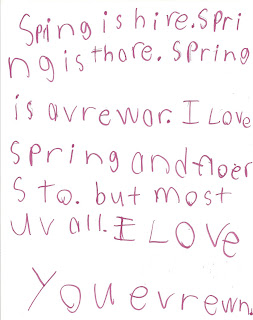 Spring is hire. Spri
ng is thare. Spring
is avrewar. I Love
spring and floer
s to. but most
uv all. I LOVE
You evrewn.